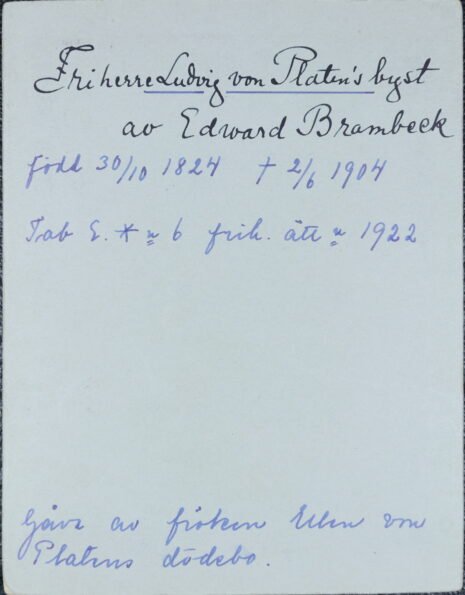 Friherre Ludvig von Platen's byst
av Edward Brambeck
född 30/10 1824 † 2/6 1904
Tab E. * n 6 frih. ätt n 1922
Gåva av fröken Ellen von
Platens dödsbo.